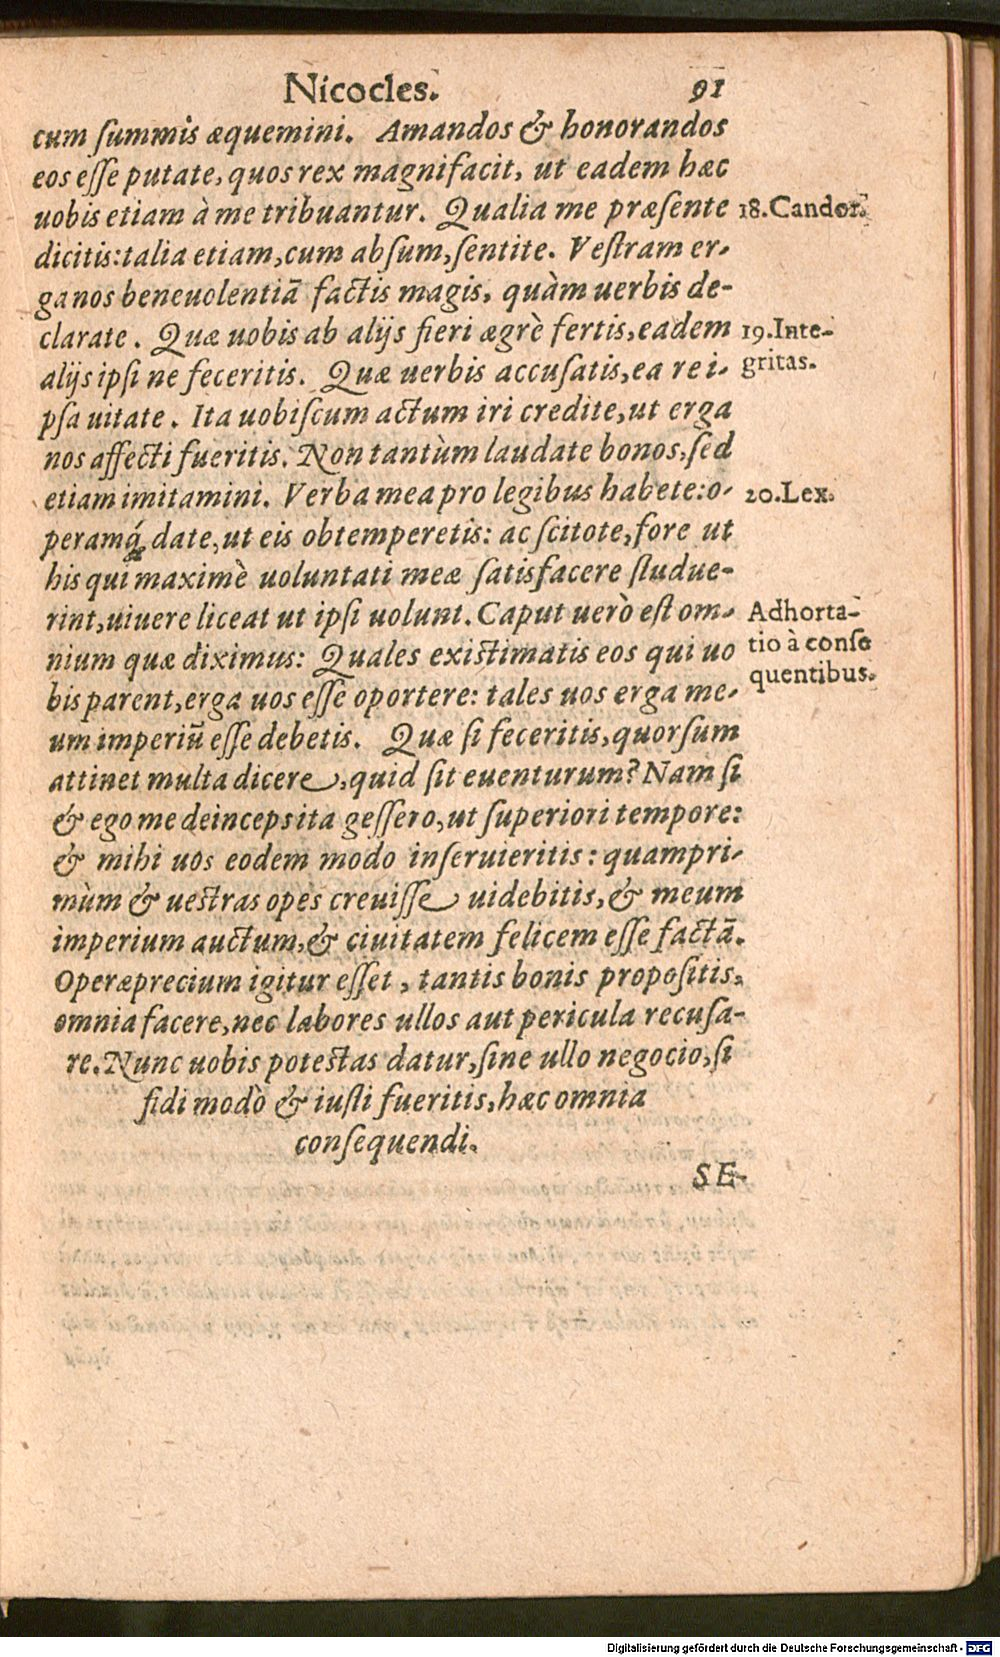 Nicocles. 91
cum ſummis æquemini. Amandos & honorandos
eos eſſe putate, quos rex magnifacit, ut eadem hæc
uobis etiam à me tribuantur. Qualia me præſente
18. Candor.
dicitis: talia etiam, cum abſum, ſentite. Veſtram er-
ga nos beneuolentiā factis magis, quàm uerbis de-
clarate. Quæ uobis ab alijs fieri ægrè fertis, eadem
19. Inte-
alijs ipſi ne feceritis. Quæ uerbis accuſatis, ea re i-
gritas.
pſa uitate. Ita uobiſcum actum iri credite, ut erga
nos affecti fueritis. Non tantùm laudate bonos, ſed
etiam imitamini. Verba mea pro legibus habete: o-
20. Lex.
peramq́ue date, ut eis obtemperetis: ac ſcitote, fore ut
his qui maximè uoluntati meæ ſatisfacere ſtudue-
rint, uiuere liceat ut ipſi uolunt. Caput uerò eſt om-
Adhorta-
nium quæ diximus: Quales existimatis eos qui uo
tio à conſe
bis parent, erga uos eſſe oportere: tales uos erga me-
quentibus.
um imperiū eſſe debetis. Quæ ſi feceritis, quorſum
attinet multa dicere, quid ſit euenturum? Nam ſi
& ego me deinceps ita geſſero, ut ſuperiori tempore:
& mihi uos eodem modo inſeruieritis: quampri-
mùm & uestras opes creuiſſe uidebitis, & meum
imperium auctum, & ciuitatem felicem eſſe factā.
Operæprecium igitur eſſet, tantis bonis propoſitis,
omnia facere, nec labores ullos aut pericula recuſa-
re. Nunc uobis potestas datur, ſine ullo negocio, ſi
fidi modò & iuſti fueritis, hæc omnia
conſequendi.
SE-
Digitalisierung gefördert durch die Deutsche Forschungsgemeinschaft - DFG